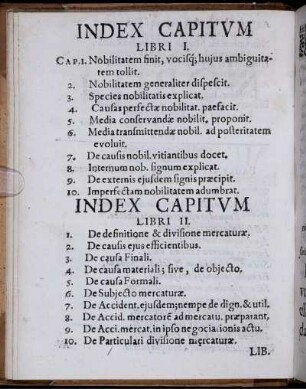 INDEX CAPITVM
LIBRI I.
CAP. I. Nobilitatem finit, vocisq; hujus ambiguita-
tem tollit.
2. Nobilitatem generaliter dispescit.
3. Species nobilitatis explicat.
4. Causas perfectæ nobilitat. patefacit.
5. Media conservandæ nobilit, proponit.
6. Media transmittendæ nobil. ad posteritatem
evoluit.
7. De causis nobil. vitiantibus docet.
8. Internum nob. signum explicat.
9. De externis ejusdem signis præcipit.
10. Imperfectam nobilitatem adumbrat.
INDEX CAPITVM
LIBRI II.
1. De definitione & divisione mercaturæ,
2. De causis ejus efficientibus.
3. De causa Finali.
4. De causa materiali; sive, de objecto,
5. De causa Formali.
6. De Subjecto mercaturæ.
7. De Accident. ejusdem; nempe de dign. & util.
8. De Accid. mercatorē ad mercatu. præparant.
9. De Acci. mercat. in ipso negociationis actu.
10. De Particulari divisione mercaturæ.
LIB.